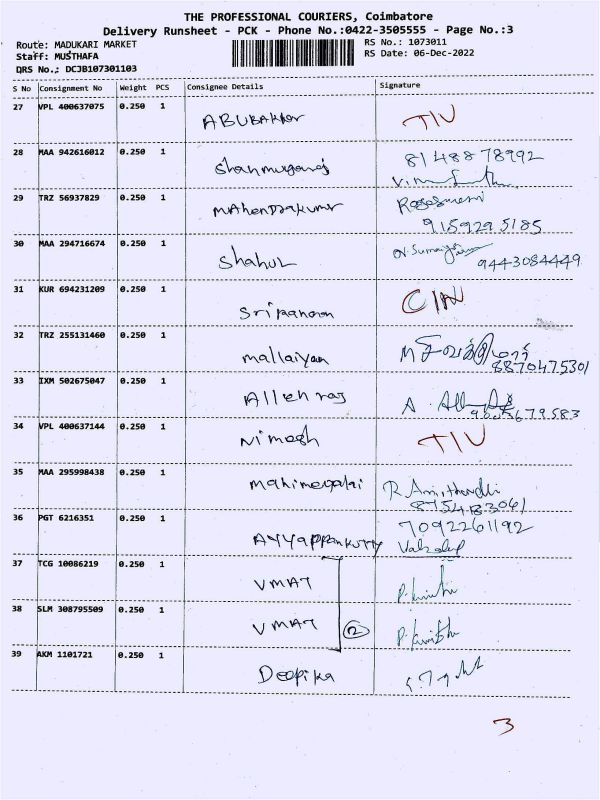 THE PROFESSIONAL COURIERS, Coimbatore
Delivery Runsheet - PCK - Phone No.:0422-3505555 - Page No.:3
Route: MADUKARI MARKET RS No.: 1073011
Staff: MUSTHAFA RS Date: 06-Dec-2022
DRS No.: DCJB107301103
S No Consignment No Weight PCS Consignee Details Signature
27 VPL 400637075 0.250 1 ABUBAKKAR
28 MAA 942616012 0.250 1 Shanmugaraj 8148878992
29 TRZ 56937829 0.250 1 MAhendrakumar
9159295185
30 MAA 294716674 0.250 1 Shahul 9443084449
31 KUR 694231209 0.250 1
32 TRZ 255131460 0.250 1 mallaiyan
8870475301
33 IXM 502675047 0.250 1 Allen raj
34 VPL 400637144 0.250 1 Nimesh
35 MAA 295998438 0.250 1 Manimegalai
36 PGT 6216351 0.250 1 AyyappanKutty 7092261192
37 TCG 10086219 0.250 1 VMAT
38 SLM 308795509 0.250 1 VMAT 2
39 AKM 1101721 0.250 1 Deepika
3